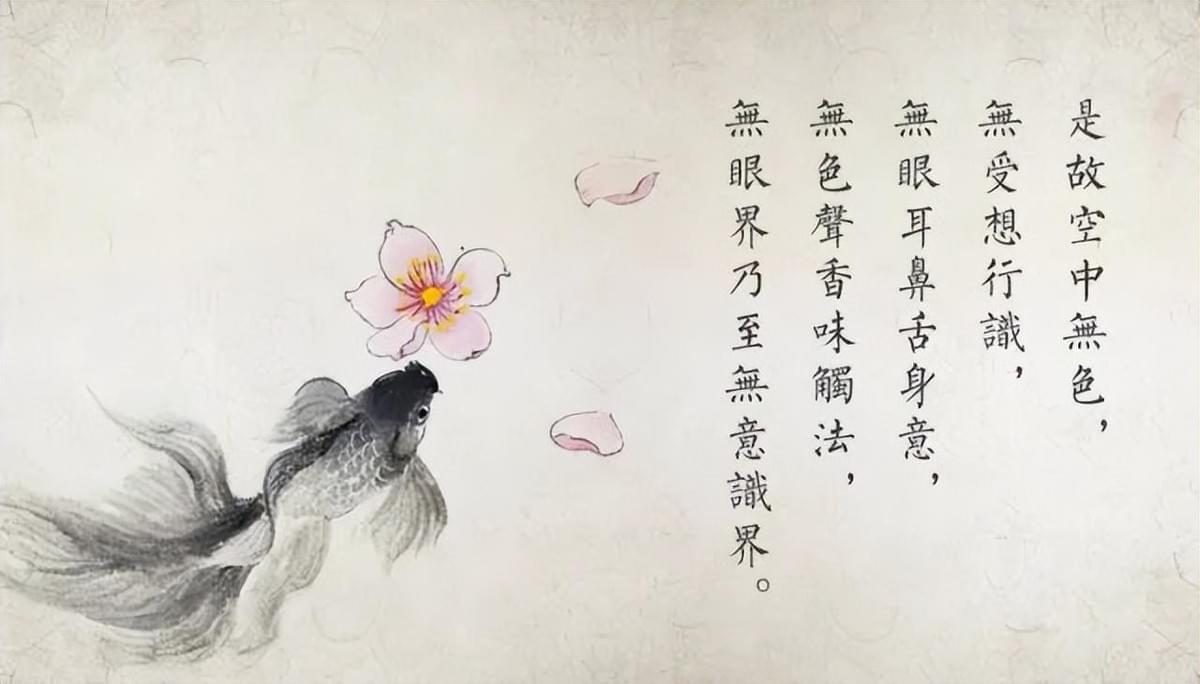 是故空中無色，
無受想行識，
無眼耳鼻舌身意，
無色聲香味觸法，
無眼界乃至無意識界。